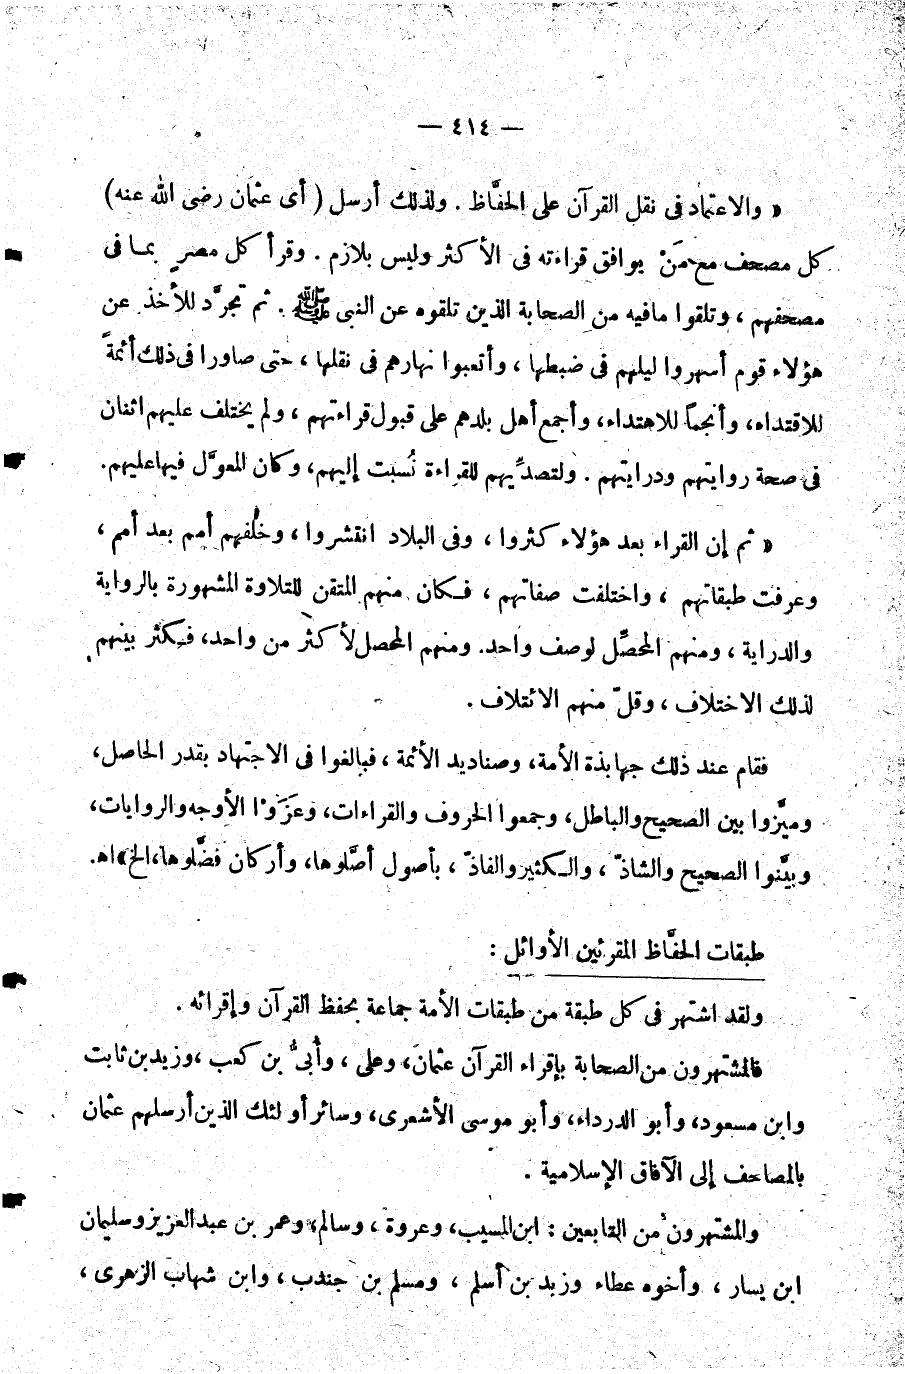 — ٤١٤ —
« والاعتماد فى نقل القرآن على الحفَّاظ . ولذلك أرسل ( أى عثمان رضى الله عنه )
كل مصحف مع مَنْ يوافق قراءته فى الأكثر وليس بلازم . وقرأ كل مصرٍ بما فى
مصحفهم ، وتلقوا مافيه من الصحابة الذين تلقوه عن النبى ﷺ . ثم تجرَّد للأخذ عن
هؤلاء قوم أسهروا ليلهم فى ضبطها ، وأتعبوا نهارهم فى نقلها ، حتى صاروا فى ذلك أئمةً
للاقتداء ، وأنجماً للاهتداء ، وأجمع أهل بلدهم على قبول قراءتهم ، ولم يختلف عليهم اثنان
فى صحة روايتهم ودرايتهم . ولتصدِّيهم للقراءة نُسبت إليهم ، وكان المعوَّل فيها عليهم.
« ثم إن القراء بعد هؤلاء كثروا ، وفى البلاد انتشروا ، وخلُفهم أمم بعد أمم ،
وعرفت طبقاتهم ، واختلفت صفاتهم ، فكان منهم المتقن للتلاوة المشهورة بالرواية
والدراية ، ومنهم المحصِّل لوصف واحد. ومنهم المحصل لأكثر من واحد، فكثر بينهم
لذلك الاختلاف ، وقلّ منهم الائتلاف .
فقام عند ذلك جهابذة الأمة، وصناديد الأئمة ، فبالغوا فى الاجتهاد بقدر الحاصل،
وميَّزوا بين الصحيح والباطل، وجمعوا الحروف والقراءات، وعَزَوْا الأوجه والروايات،
وبيَّنوا الصحيح والشاذّ ، والكثير والفاذّ ، بأصول أصَّلوها، وأركان فضَّلوها، الخ » اه.
طبقات الحفَّاظ المقرئين الأوائل :
ولقد اشتهر فى كل طبقة من طبقات الأمة جماعة بحفظ القرآن وإقرائه .
فالمشتهرون من الصحابة بإقراء القرآن عثمان، وعلى ، وأُبىُّ بن كعب ، وزيد بن ثابت
وابن مسعود، وأبو الدرداء، وأبو موسى الأشعرى، وسائر أولئك الذين أرسلهم عثمان
بالمصاحف إلى الآفاق الإسلامية .
والمشتهرون من التابعين : ابن المسيب، وعروة ، وسالم، وعمر بن عبد العزيز وسليمان
ابن يسار ، وأخوه عطاء وزيد بن أسلم ، ومسلم بن جندب ، وابن شهاب الزهرى ،